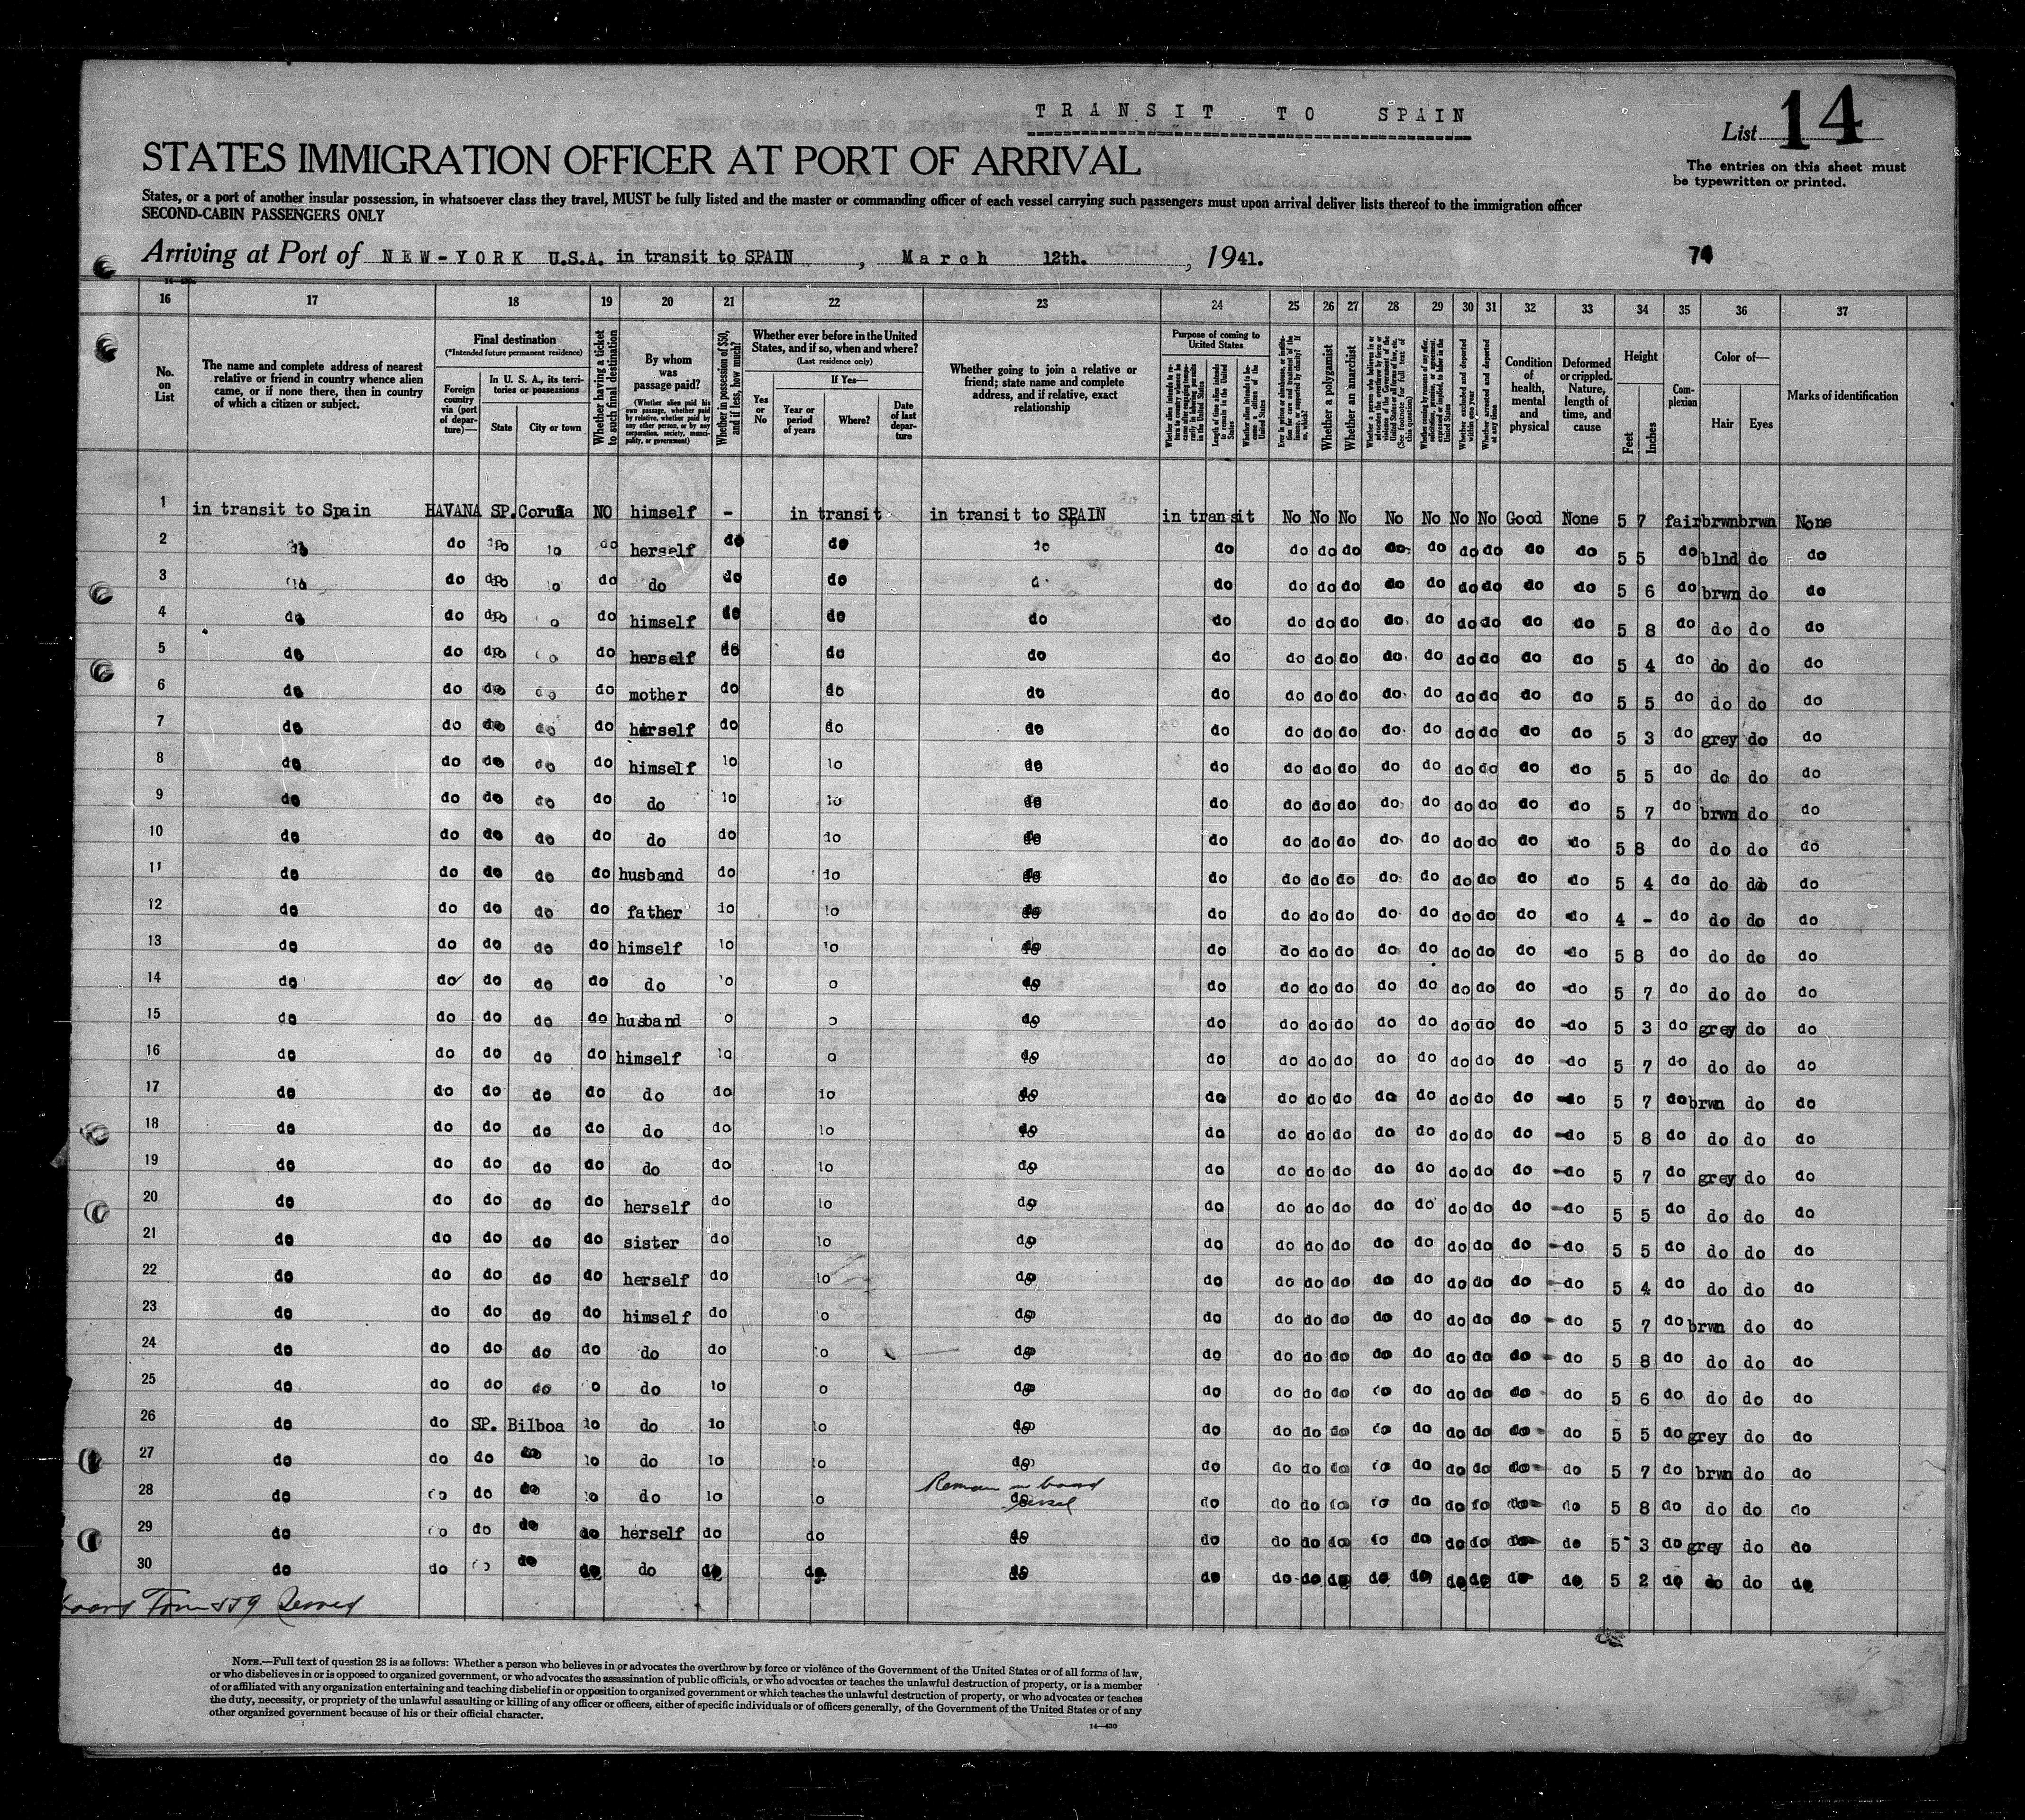 TRANSIT TO SPAIN
List 14
STATES IMMIGRATION OFFICER AT PORT OF ARRIVAL
The entries on this sheet must
be typewritten or printed.
States, or a port of another insular possession, in whatsoever class they travel, MUST be fully listed and the master or commanding officer of each vessel carrying such passengers must upon arrival deliver lists thereof to the immigration officer
SECOND-CABIN PASSENGERS ONLY
Arriving at Port of NEW-YORK U.S.A. in transit to SPAIN, March 12th., 1941.
16 17 18 19 20 21 22 23 24 25 26 27 28 29 30 31 32 33 34 35 36 37
No. on List
The name and complete address of nearest relative or friend in country whence alien came, or if none there, then in country of which a citizen or subject.
Final destination
(*Intended future permanent residence)
Foreign country via (port of departure)—
In U. S. A., its territories or possessions
State
City or town
Whether having a ticket to such final destination
By whom was passage paid?
(Whether alien paid his own passage, whether paid by relative, whether paid by any other person, or by any corporation, society, municipality, or government)
Whether in possession of $50, and if less, how much?
Whether ever before in the United States, and if so, when and where?
(Last residence only)
Yes or No
If Yes—
Year or period of years
Where?
Date of last departure
Whether going to join a relative or friend; state name and complete address, and if relative, exact relationship
Purpose of coming to United States
Length of time alien intends to remain in the United States
Whether alien intends to become a citizen of the United States
Whether a polygamist
Whether an anarchist
Whether excluded and deported within one year
Whether arrested and deported at any time
Condition of health, mental and physical
Deformed or crippled. Nature, length of time, and cause
Height
Feet
Inches
Complexion
Color of—
Hair
Eyes
Marks of identification
1 in transit to Spain HAVANA SP. Coruña NO himself - in transit in transit to SPAIN in transit No No No No No No No Good None 5 7 fair brwn brwn None
2 do do do do do herself do do do do do do do do do do do do do 5 5 do blnd do do
3 do do do do do do do do do do do do do do do do do do do 5 6 do brwn do do
4 do do do do do himself do do do do do do do do do do do do do 5 8 do do do do
5 do do do do do herself do do do do do do do do do do do do do 5 4 do do do do
6 do do do do do mother do do do do do do do do do do do do do 5 5 do do do do
7 do do do do do herself do do do do do do do do do do do do do 5 3 do grey do do
8 do do do do do himself do do do do do do do do do do do do do 5 5 do do do do
9 do do do do do do do do do do do do do do do do do do do 5 7 do brwn do do
10 do do do do do do do do do do do do do do do do do do do 5 8 do do do do
11 do do do do do husband do do do do do do do do do do do do do 5 4 do do do do
12 do do do do do father do do do do do do do do do do do do do 4 - do do do do
13 do do do do do himself do do do do do do do do do do do do do 5 8 do do do do
14 do do do do do do do do do do do do do do do do do do do 5 7 do do do do
15 do do do do do husband do do do do do do do do do do do do do 5 3 do grey do do
16 do do do do do himself do do do do do do do do do do do do do 5 7 do do do do
17 do do do do do do do do do do do do do do do do do do do 5 7 do brwn do do
18 do do do do do do do do do do do do do do do do do do do 5 8 do do do do
19 do do do do do do do do do do do do do do do do do do do 5 7 do grey do do
20 do do do do do herself do do do do do do do do do do do do do 5 5 do do do do
21 do do do do do sister do do do do do do do do do do do do do 5 5 do do do do
22 do do do do do herself do do do do do do do do do do do do do 5 4 do do do do
23 do do do do do himself do do do do do do do do do do do do do 5 7 do brwn do do
24 do do do do do do do do do do do do do do do do do do do 5 8 do do do do
25 do do do do do do do do do do do do do do do do do do do 5 6 do do do do
26 do do SP. Bilboa do do do do do do do do do do do do do do do 5 5 do grey do do
27 do do do do do do do do do do do do do do do do do do do 5 7 do brwn do do
Remain on board vessel
28 do do do do do do do do do do do do do do do do do do do 5 8 do do do do
29 do do do do do herself do do do do do do do do do do do do do 5 3 do grey do do
30 do do do do do do do do do do do do do do do do do do do 5 2 do do do do
Form 559 Served
NOTE.—Full text of question 28 is as follows: Whether a person who believes in or advocates the overthrow by force or violence of the Government of the United States or of all forms of law,
or who disbelieves in or is opposed to organized government, or who advocates the assassination of public officials, or who advocates or teaches the unlawful destruction of property, or is a member
of or affiliated with any organization entertaining and teaching disbelief in or opposition to organized government or which teaches the unlawful destruction of property, or who advocates or teaches
the duty, necessity, or propriety of the unlawful assaulting or killing of any officer or officers, either of specific individuals or of officers generally, of the Government of the United States or of any
other organized government because of his or their official character.
14—430